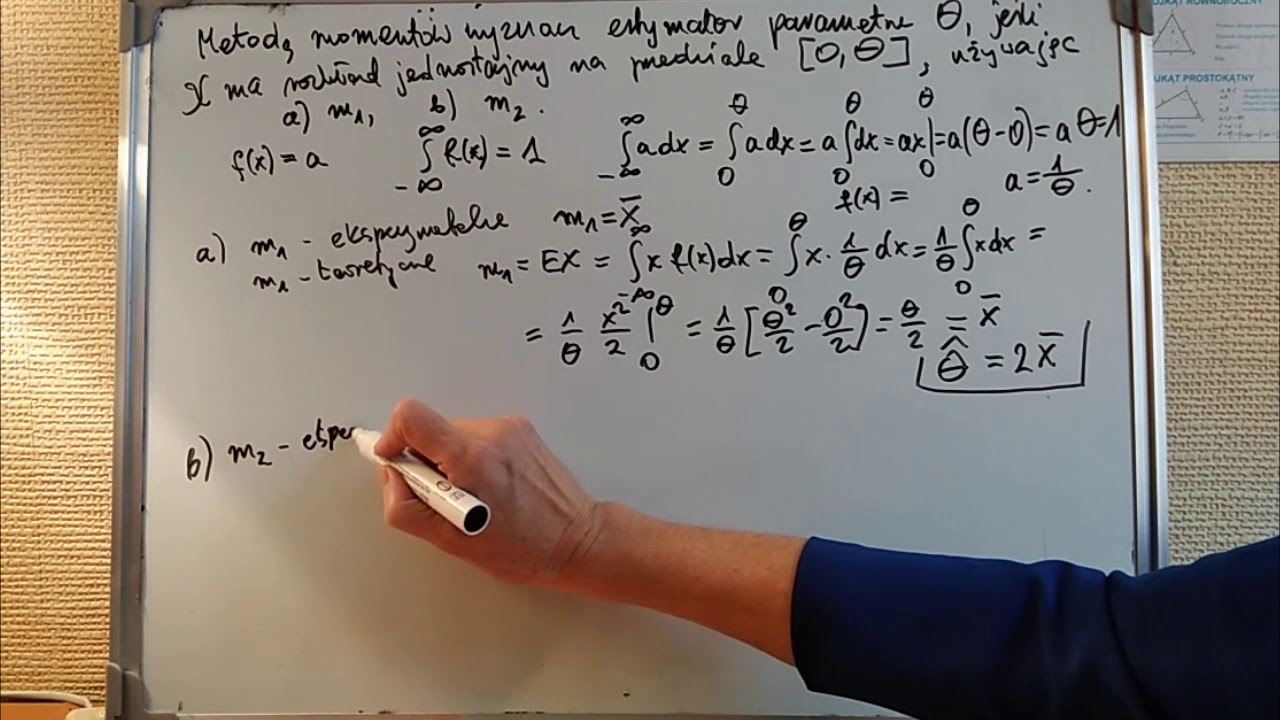 Metodą momentów wyznacz estymator parametru θ, jeśli
X ma rozkład jednostajny na przedziale [0, θ], używając
a) m₁, b) m₂.
f(x) = a ∫_{-∞}^{∞} f(x) = 1 ∫_{-∞}^{∞} a dx = ∫_{0}^{θ} a dx = a ∫_{0}^{θ} dx = ax|_{0}^{θ} = a(θ-0) = aθ = 1
f(x) = a = 1/θ.
a) m₁ - eksperymentalne m₁ = X̅
m₁ - teoretyczne m₁ = EX = ∫_{-∞}^{∞} x f(x)dx = ∫_{0}^{θ} x · 1/θ dx = 1/θ ∫_{0}^{θ} x dx =
= 1/θ x²/2 |_{0}^{θ} = 1/θ [θ²/2 - 0²/2] = θ/2 = X̅
θ̂ = 2X̅
b) m₂ - ekspe
OJKĄT RÓWNOBOCZNY
JKĄT PROSTOKĄTNY